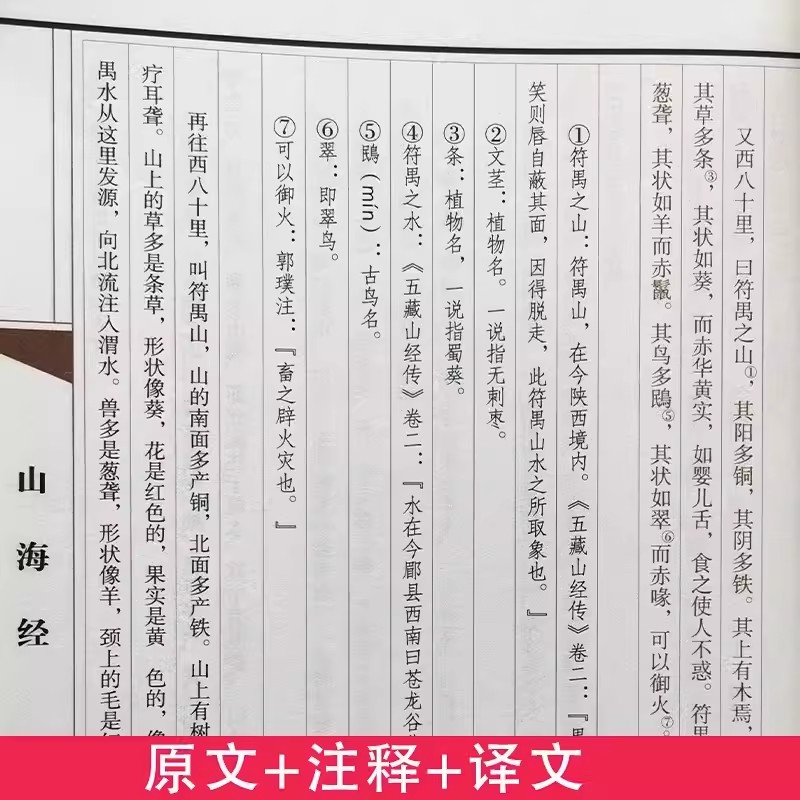 又西八十里，曰符禺之山①，其阳多铜，其阴多铁。其上有木焉，
其草多条③，其状如葵，而赤华黄实，如婴儿舌，食之使人不惑。符
葱聋，其状如羊而赤鬣。其鸟多鴖⑤，其状如翠⑥而赤喙，可以御火⑦。
①符禺之山：符禺山，在今陕西境内。《五藏山经传》卷二：『
笑则唇自蔽其面，因得脱走，此符禺山水之所取象也。』
②文茎：植物名。一说指无刺枣。
③条：植物名，一说指蜀葵。
④符禺之水：《五藏山经传》卷二：『水在今郿县西南曰苍龙谷
⑤鴖（mín）：古鸟名。
⑥翠：即翠鸟。
⑦可以御火：郭璞注：『畜之辟火灾也。』
再往西八十里，叫符禺山，山的南面多产铜，北面多产铁。山上有树
疗耳聋。山上的草多是条草，形状像葵，花是红色的，果实是黄色的，
禺水从这里发源，向北流注入渭水。兽多是葱聋，形状像羊，颈上的毛是
山海经
原文+注释+译文